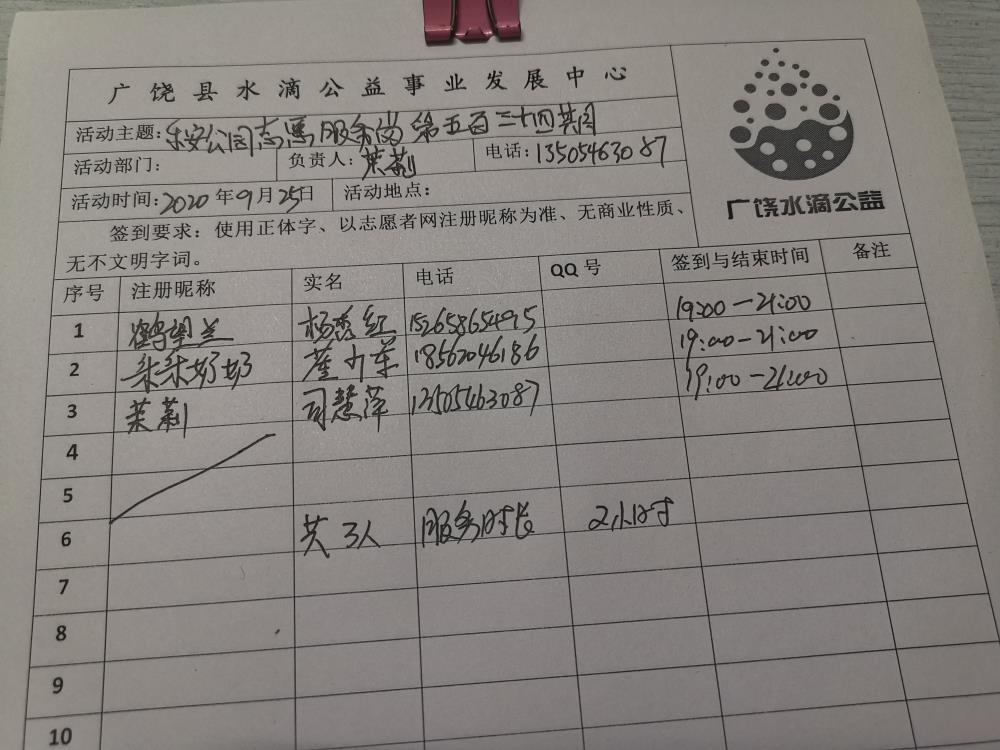 广饶县水滴公益事业发展中心
活动主题: 乐安公园志愿服务岗第五百三十四共同
活动部门: 负责人: 茉莉 电话: 13505463087
活动时间: 2020年9月25日 活动地点:
签到要求: 使用正体字、以志愿者网注册昵称为准、无商业性质、
无不文明字词。
广饶水滴公益
序号 注册昵称 实名 电话 QQ号 签到与结束时间 备注
1 鹤望兰 杨秀红 15265865495 19:00-21:00
2 朵朵奶奶 18562046186 19:00-21:00
3 茉莉 司慧萍 13505463087 19:00-21:00
4
5
6 共3人 服务时长 2小时
7
8
9
10